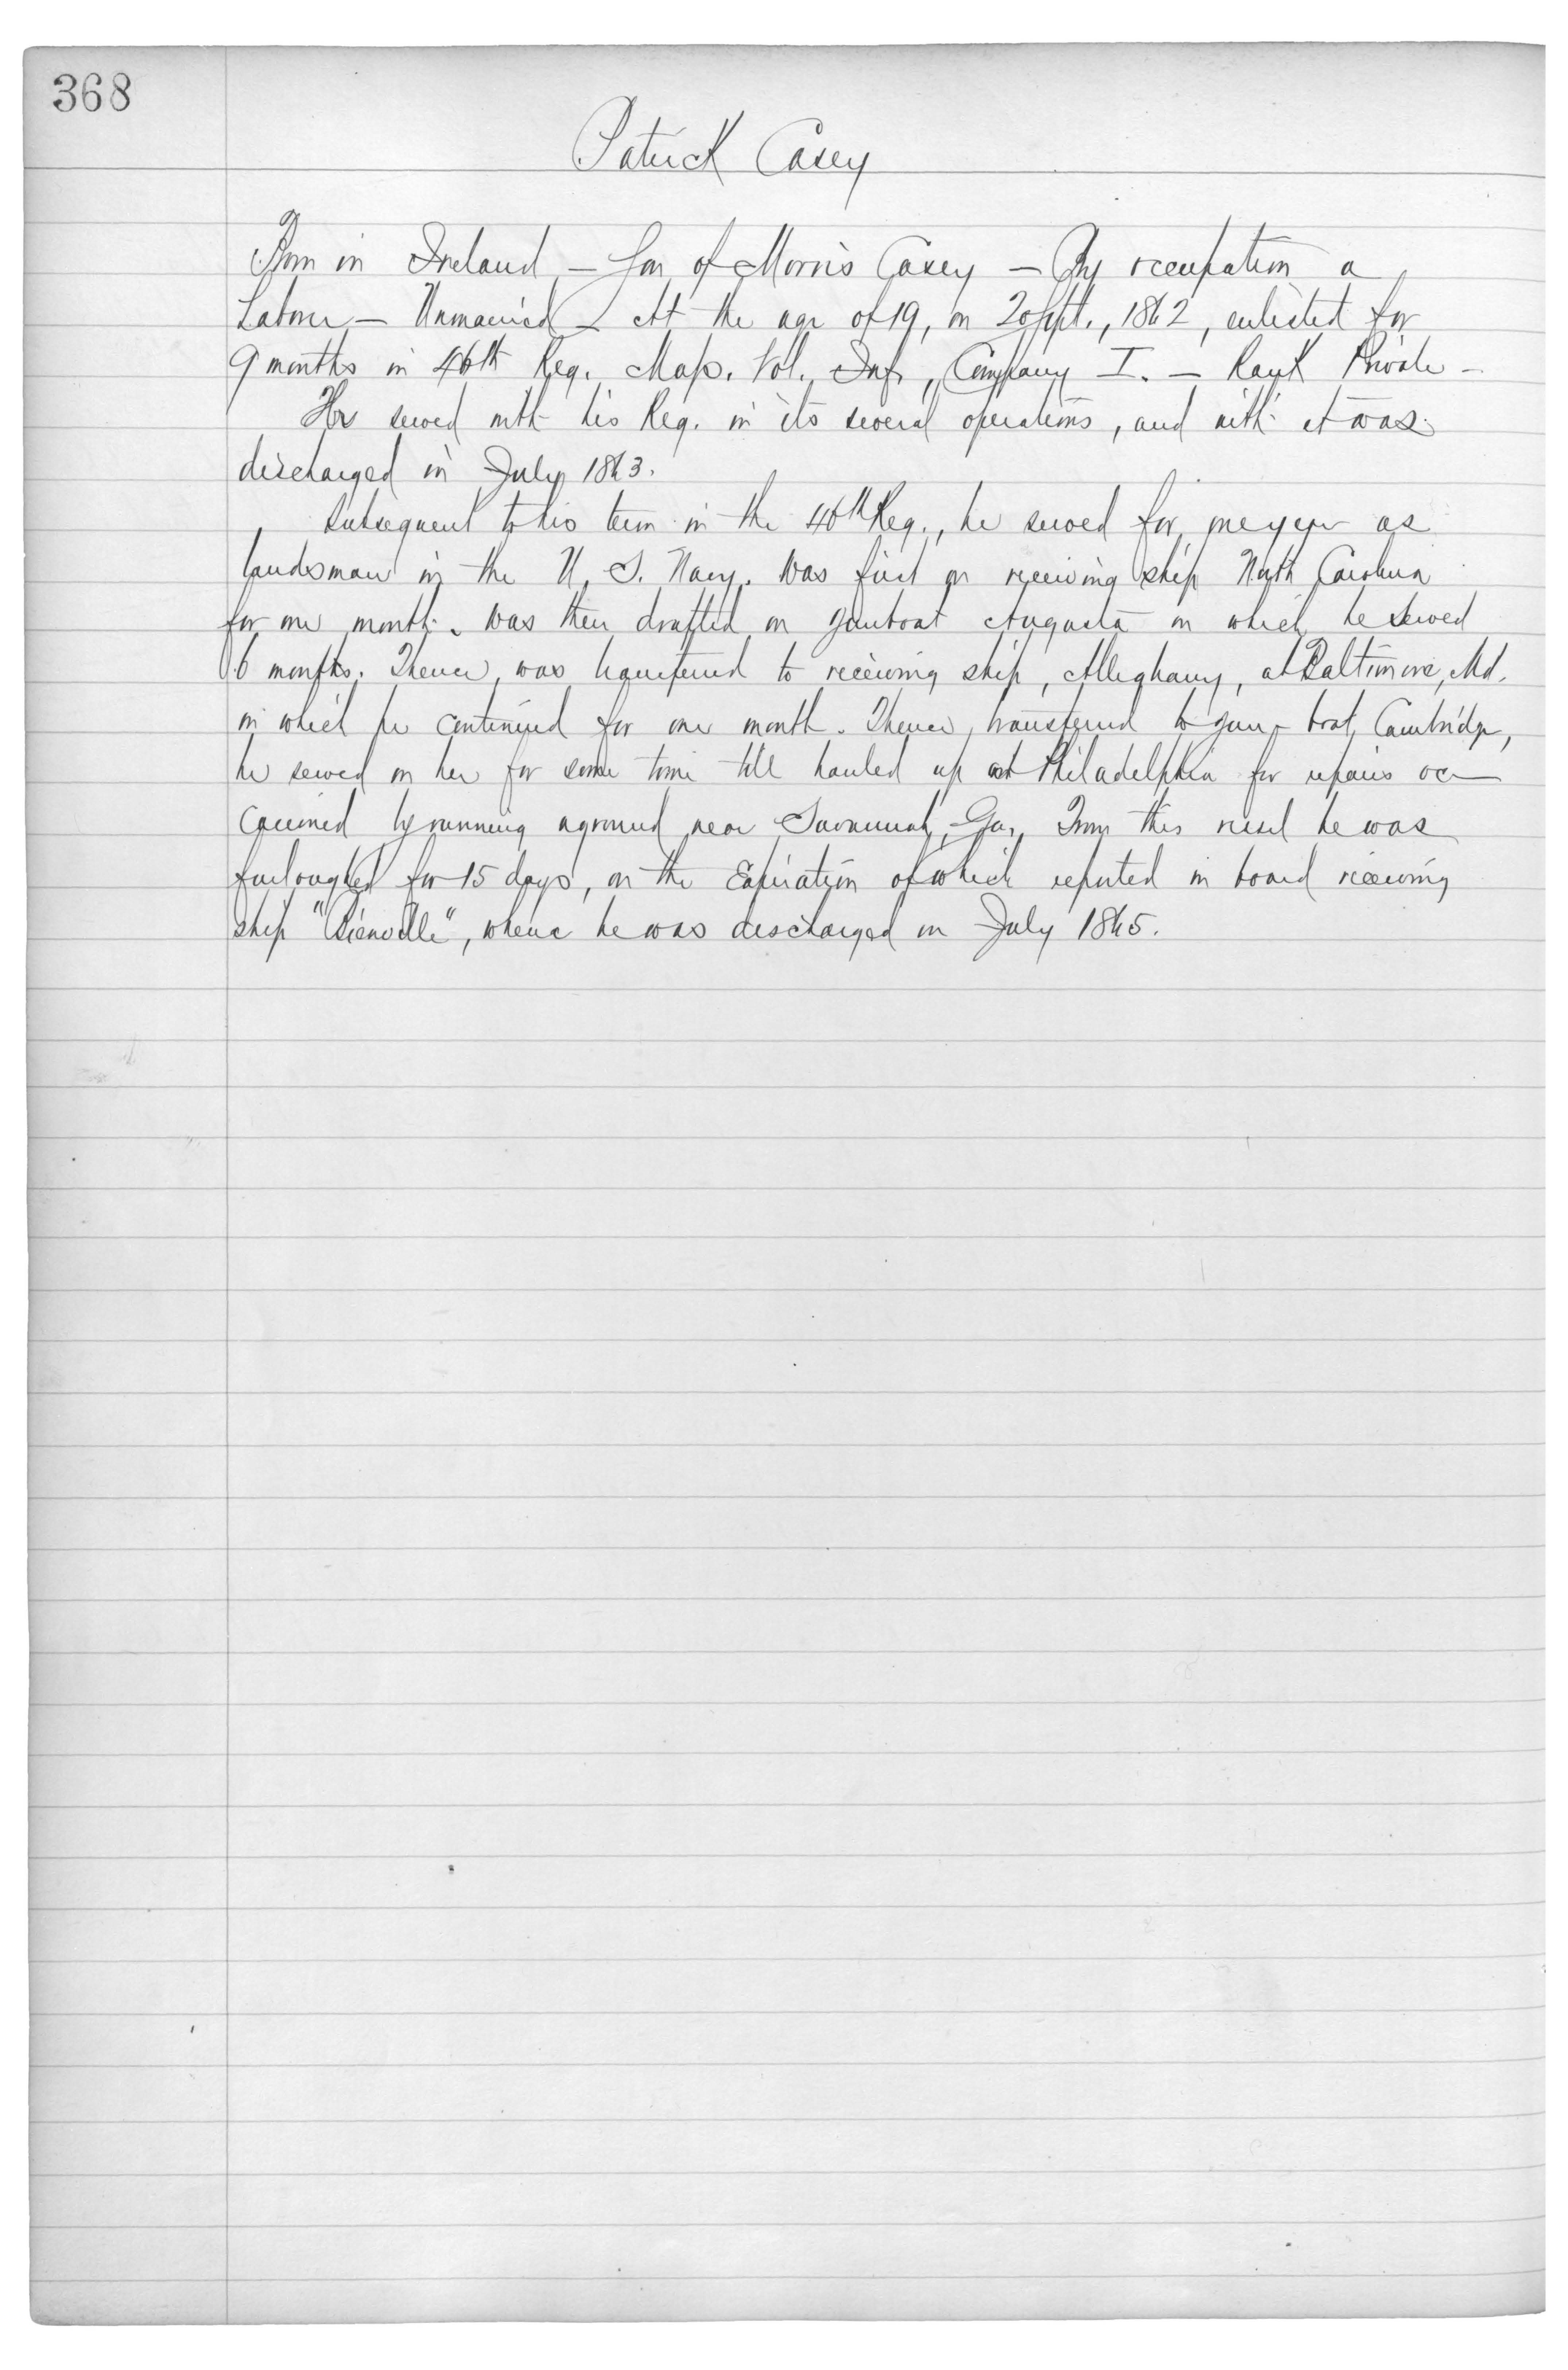 368
Patrick Casey
Born in Ireland, — Son of Morris Casey — By occupation a
Laborer — Unmarried — At the age of 19, on 20 Sept., 1862, enlisted for
9 months in 46th Reg. Mass. Vol. Inf., Company I. — Rank Private —
He served with his Reg. in its several operations, and with it was
discharged in July 1863.
Subsequent to his term in the 46th Reg., he served for one year as
landsman in the U. S. Navy. Was first on receiving ship North Carolina
for one month. Was then drafted on gunboat Augusta on which he served
6 months. Thence, was transferred to receiving ship, Alleghany, at Baltimore, Md.
in which he continued for one month. Thence, transferred to gun-boat, Cambridge,
he served on her for some time till hauled up at Philadelphia for repairs oc-
casioned by running aground near Savannah, Ga. From this vessel he was
furloughed for 15 days, on the Expiration of which reported on board receiving
ship "Bienville", whence he was discharged in July 1865.